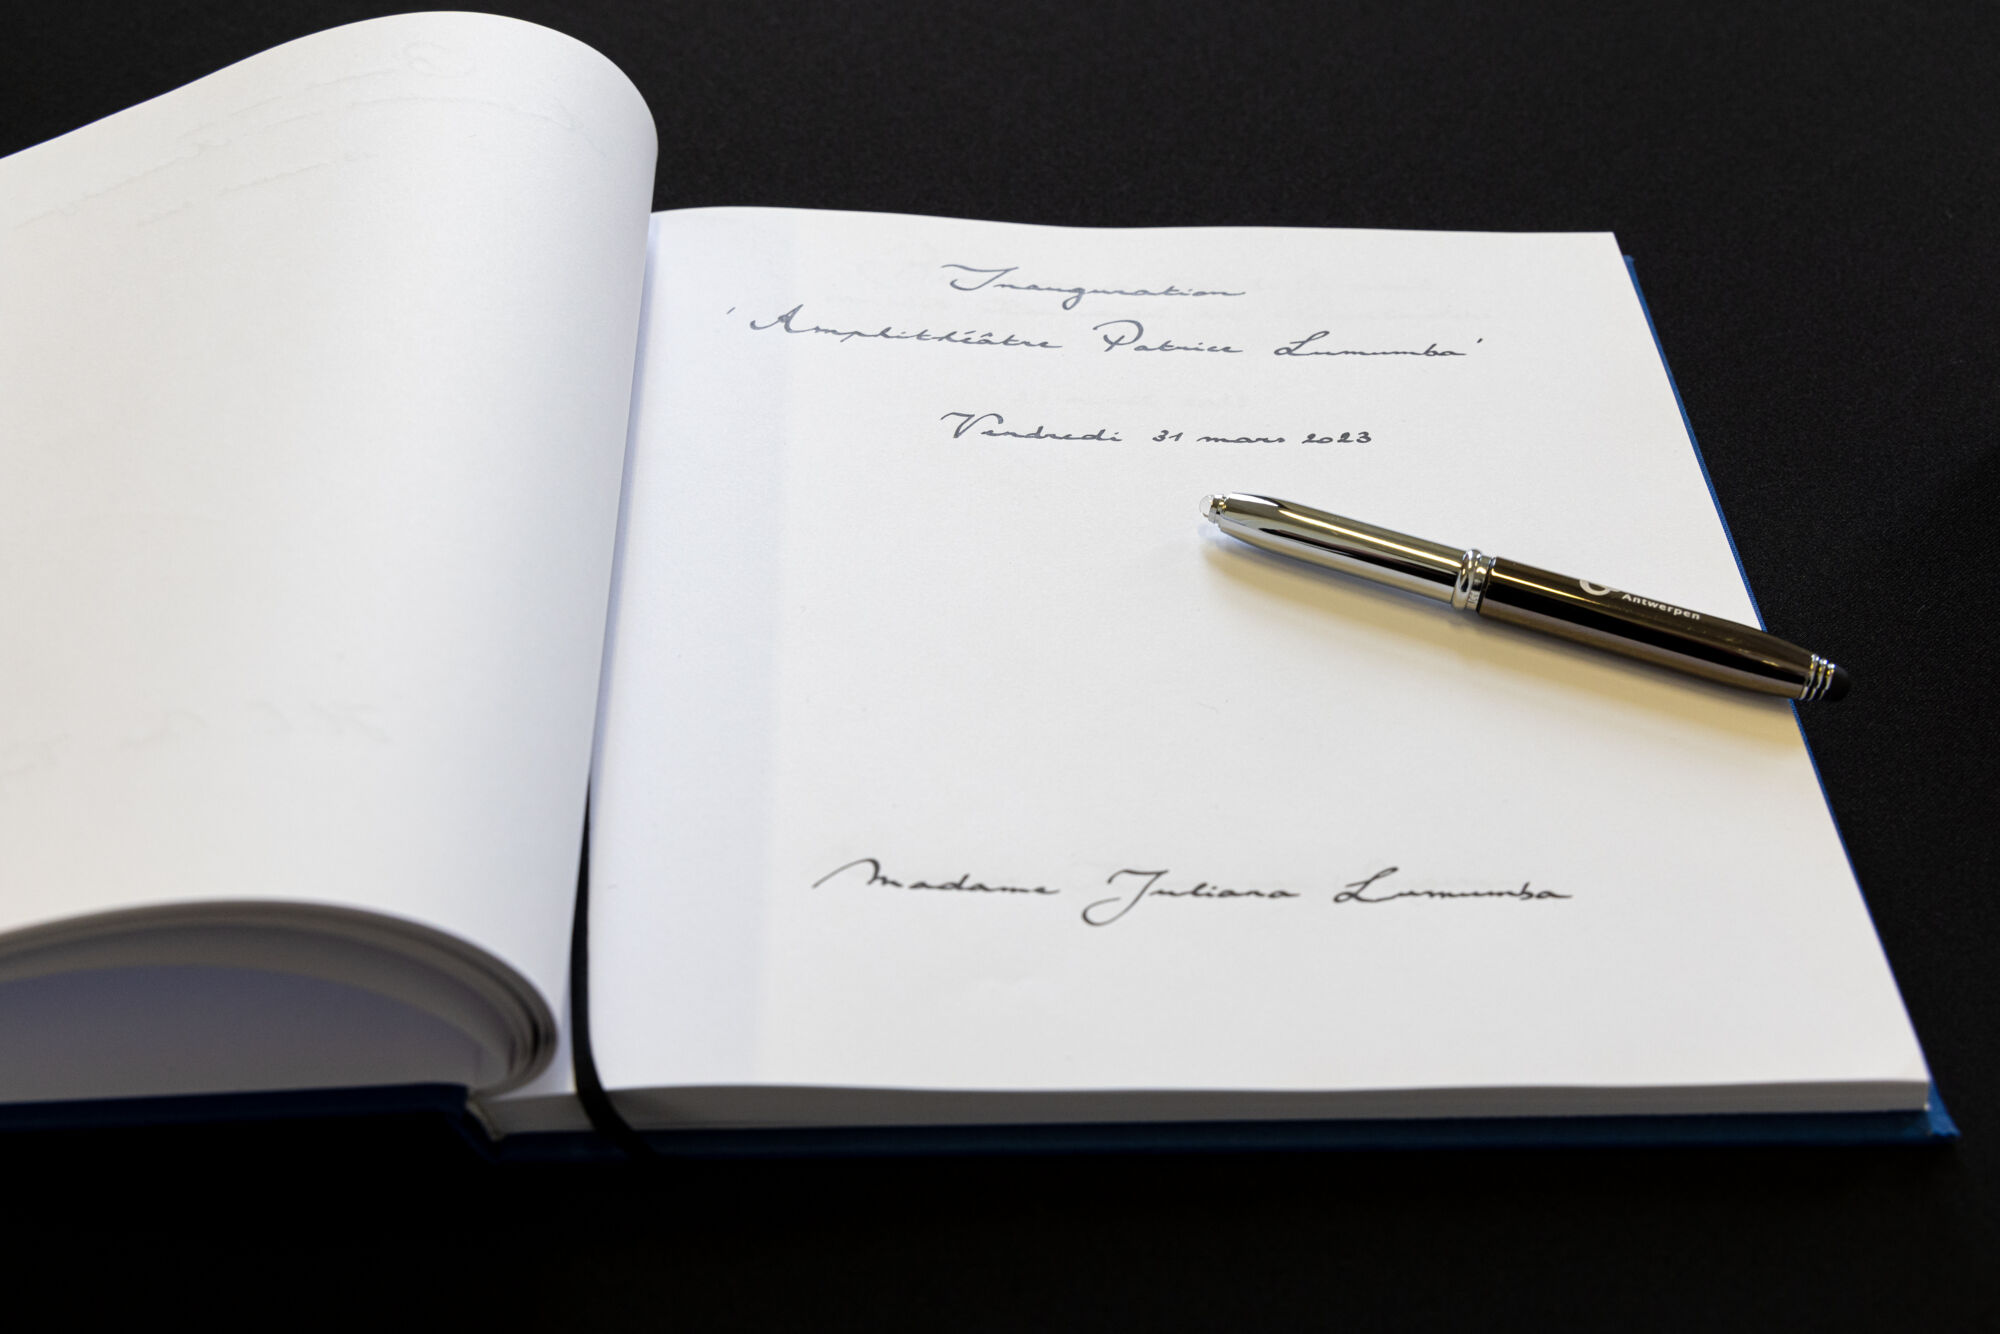 Inauguration
'Amphithéâtre Patrice Lumumba'
Vendredi 31 mars 2023
Antwerpen
Madame Juliana Lumumba